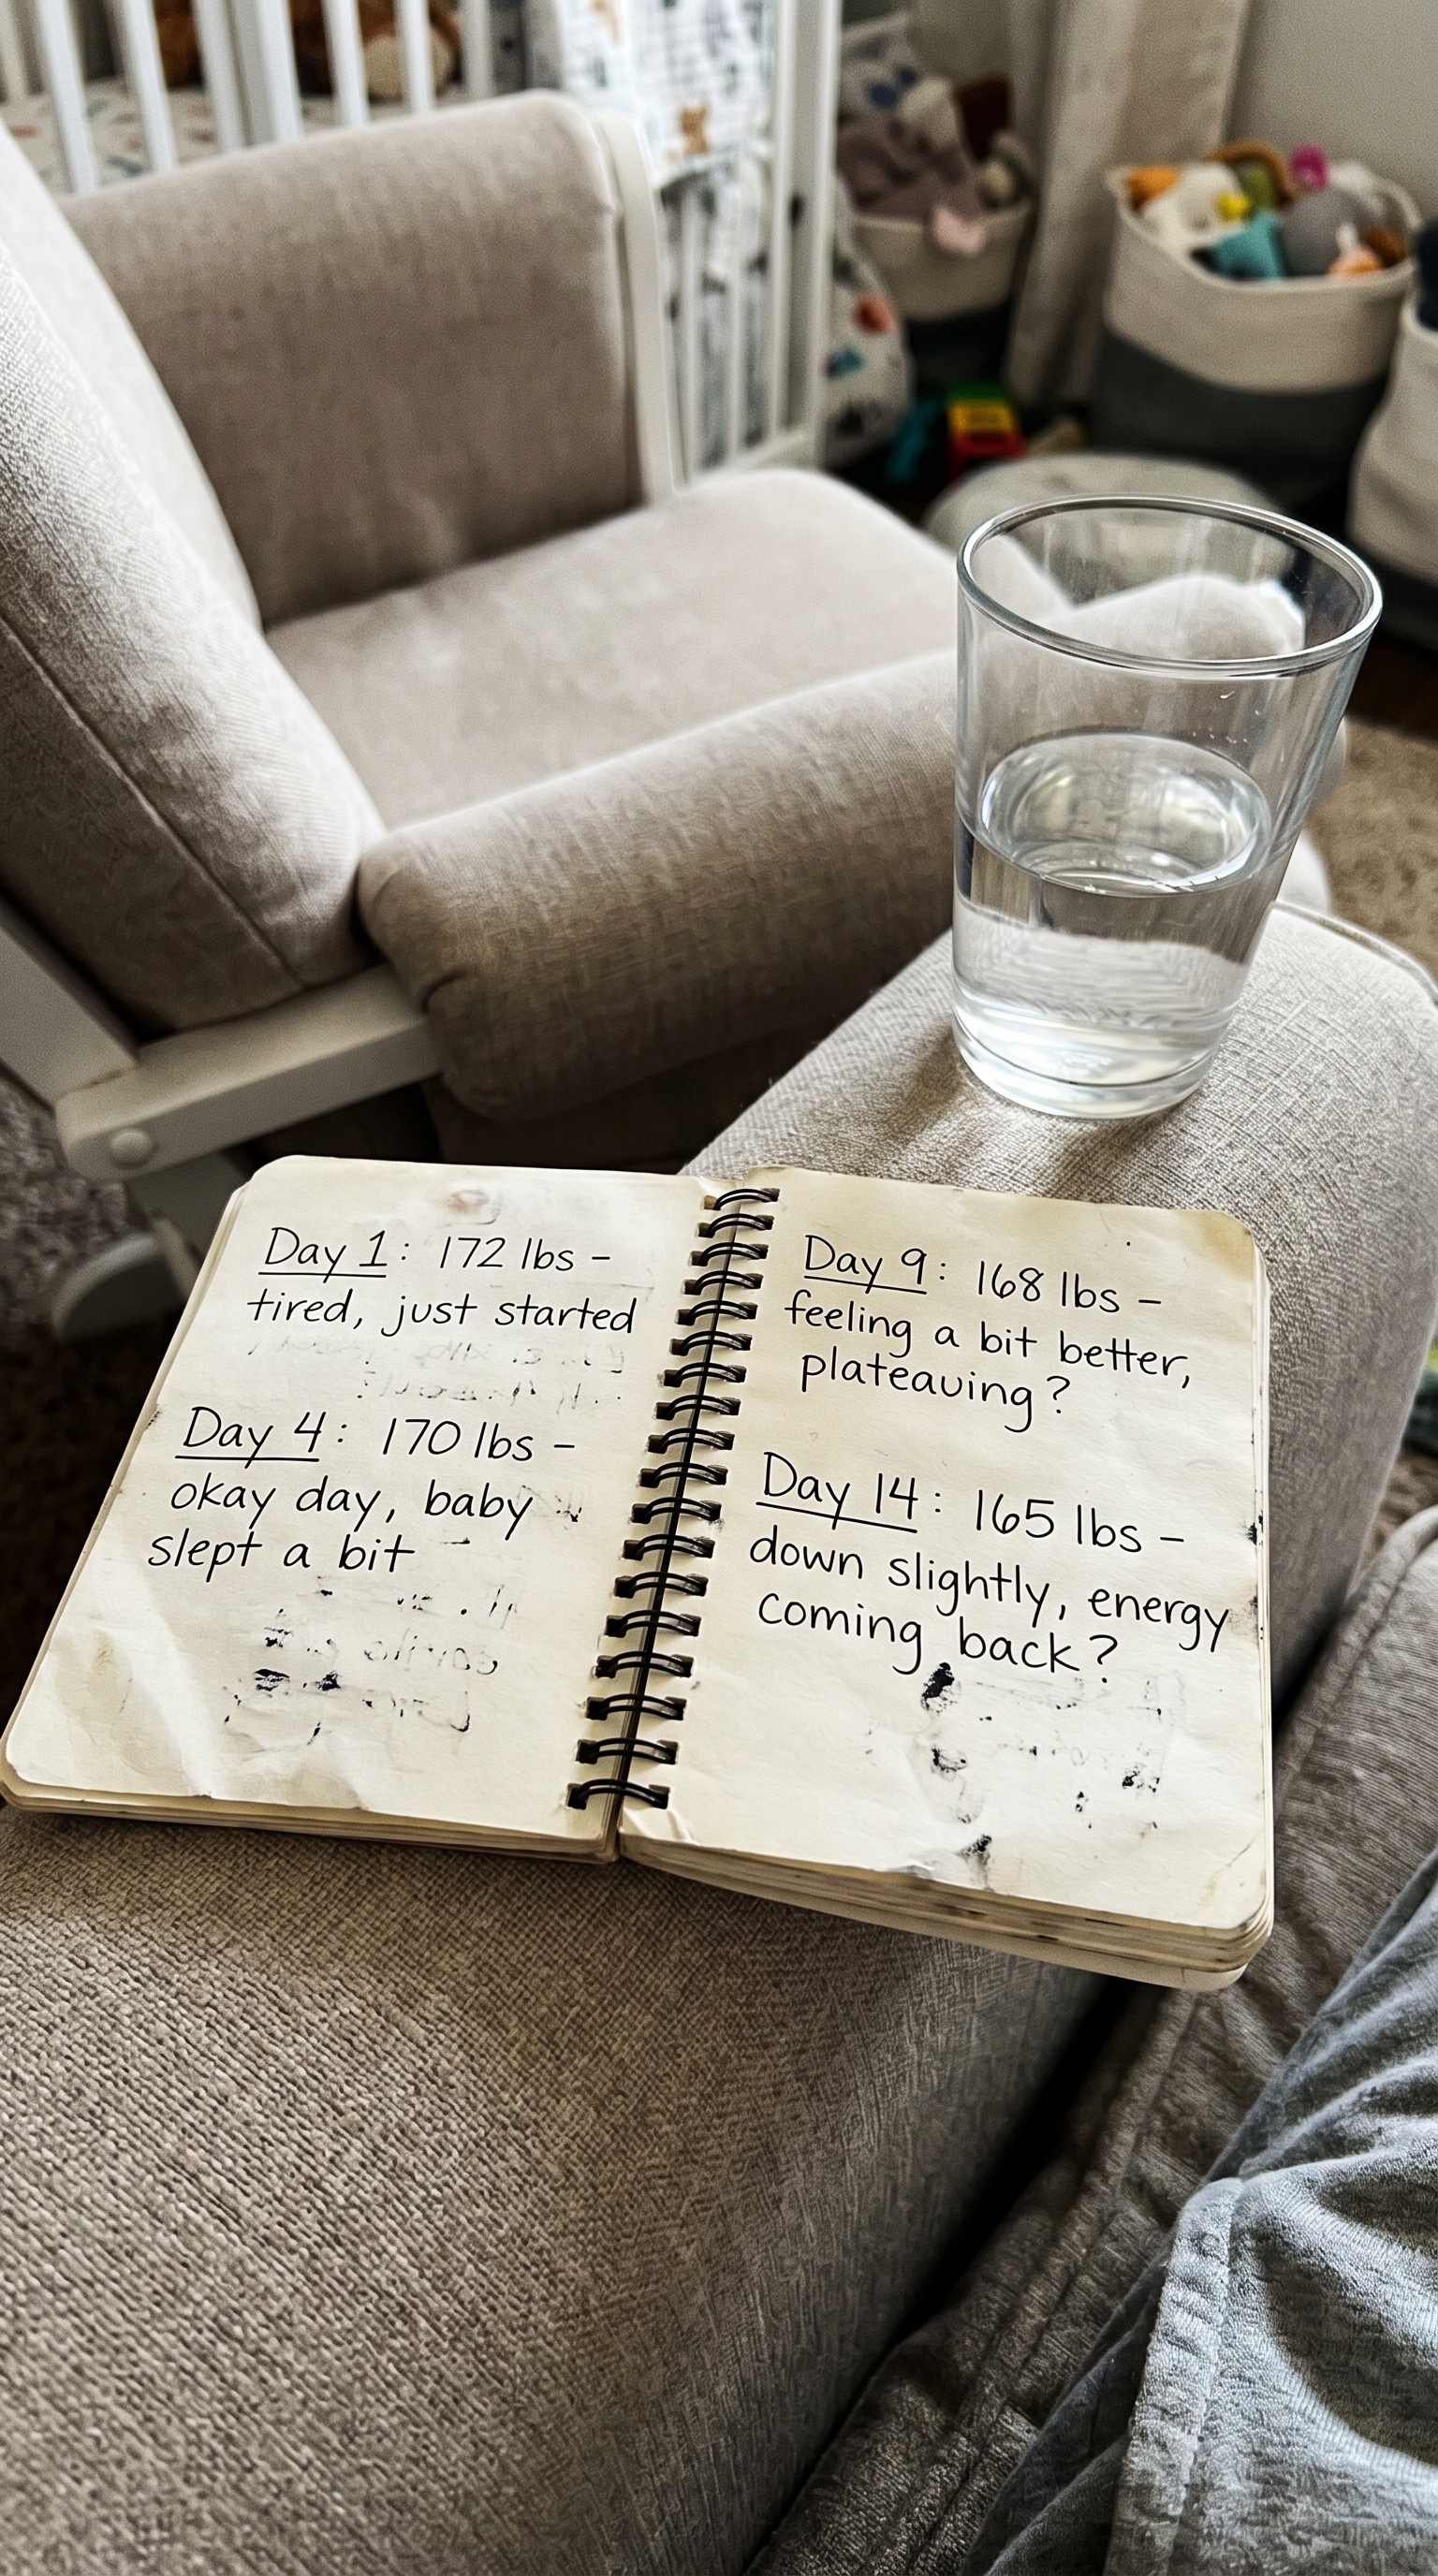 Day 1: 172 lbs –
tired, just started
Day 4: 170 lbs –
okay day, baby
slept a bit
Day 9: 168 lbs –
feeling a bit better,
plateauing?
Day 14: 165 lbs –
down slightly, energy
coming back?